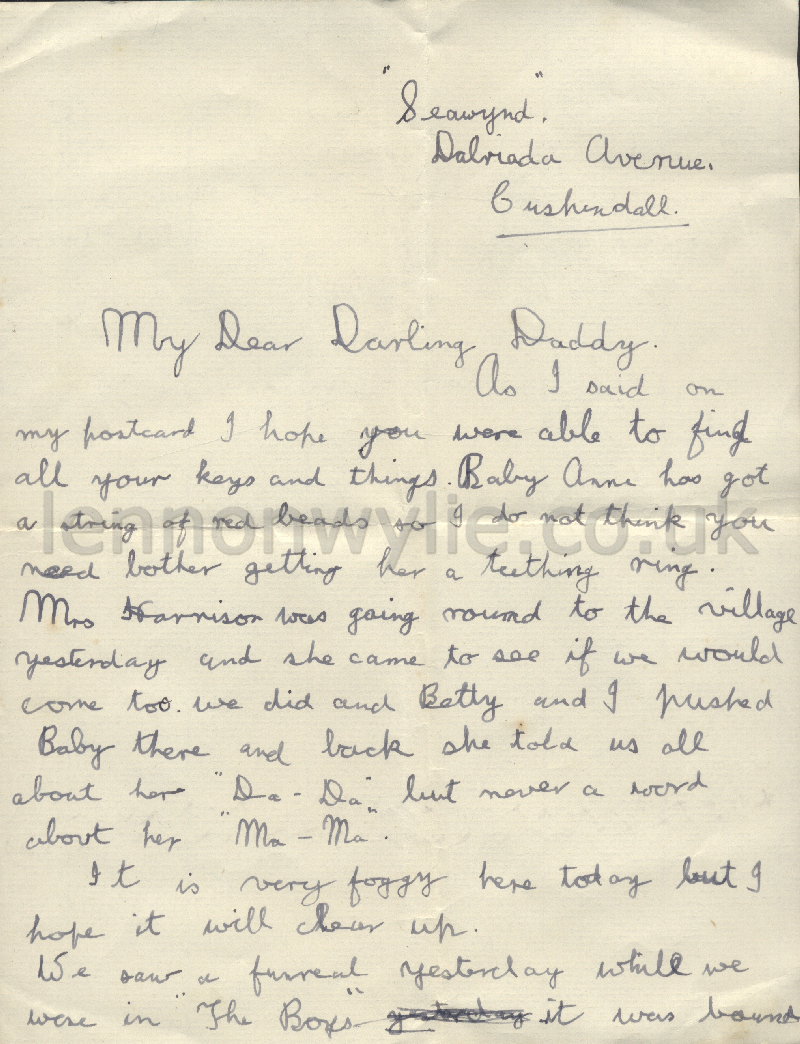 "Seawynd".
Dalriada Avenue.
Cushendall.
My Dear Darling Daddy.
As I said on
my postcard I hope you were able to find
all your keys and things. Baby Anne has got
a string of red beads so I do not think you
lennonwylie.co.uk
need bother getting her a teething ring.
Mrs Harrison was going round to the village
yesterday and she came to see if we would
come too. we did and Betty and I pushed
Baby there and back she told us all
about her "Da-Da" but never a word
about her "Ma-Ma".
It is very foggy here today but I
hope it will clear up.
We saw a funreal yesterday while we
were in "The Boys" yesterday it was bound